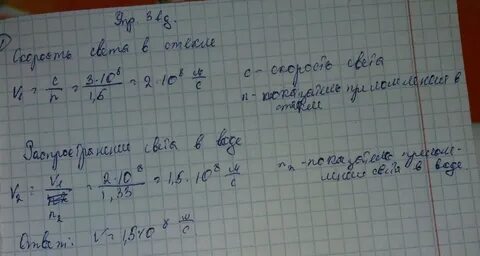 Упр. 3 вд.
1
Скорость света в стекле
V₁ = c/n = 3·10⁸/1,5 = 2·10⁸ м/с
c - скорость света
n - показатель преломления в
стекле
Распространение света в воде
V₂ = V₁/n₂ = 2·10⁸/1,33 = 1,5·10⁸ м/с
- показатель прелом-
ления света в воде
Ответ: V = 1,5·10⁸ м/с